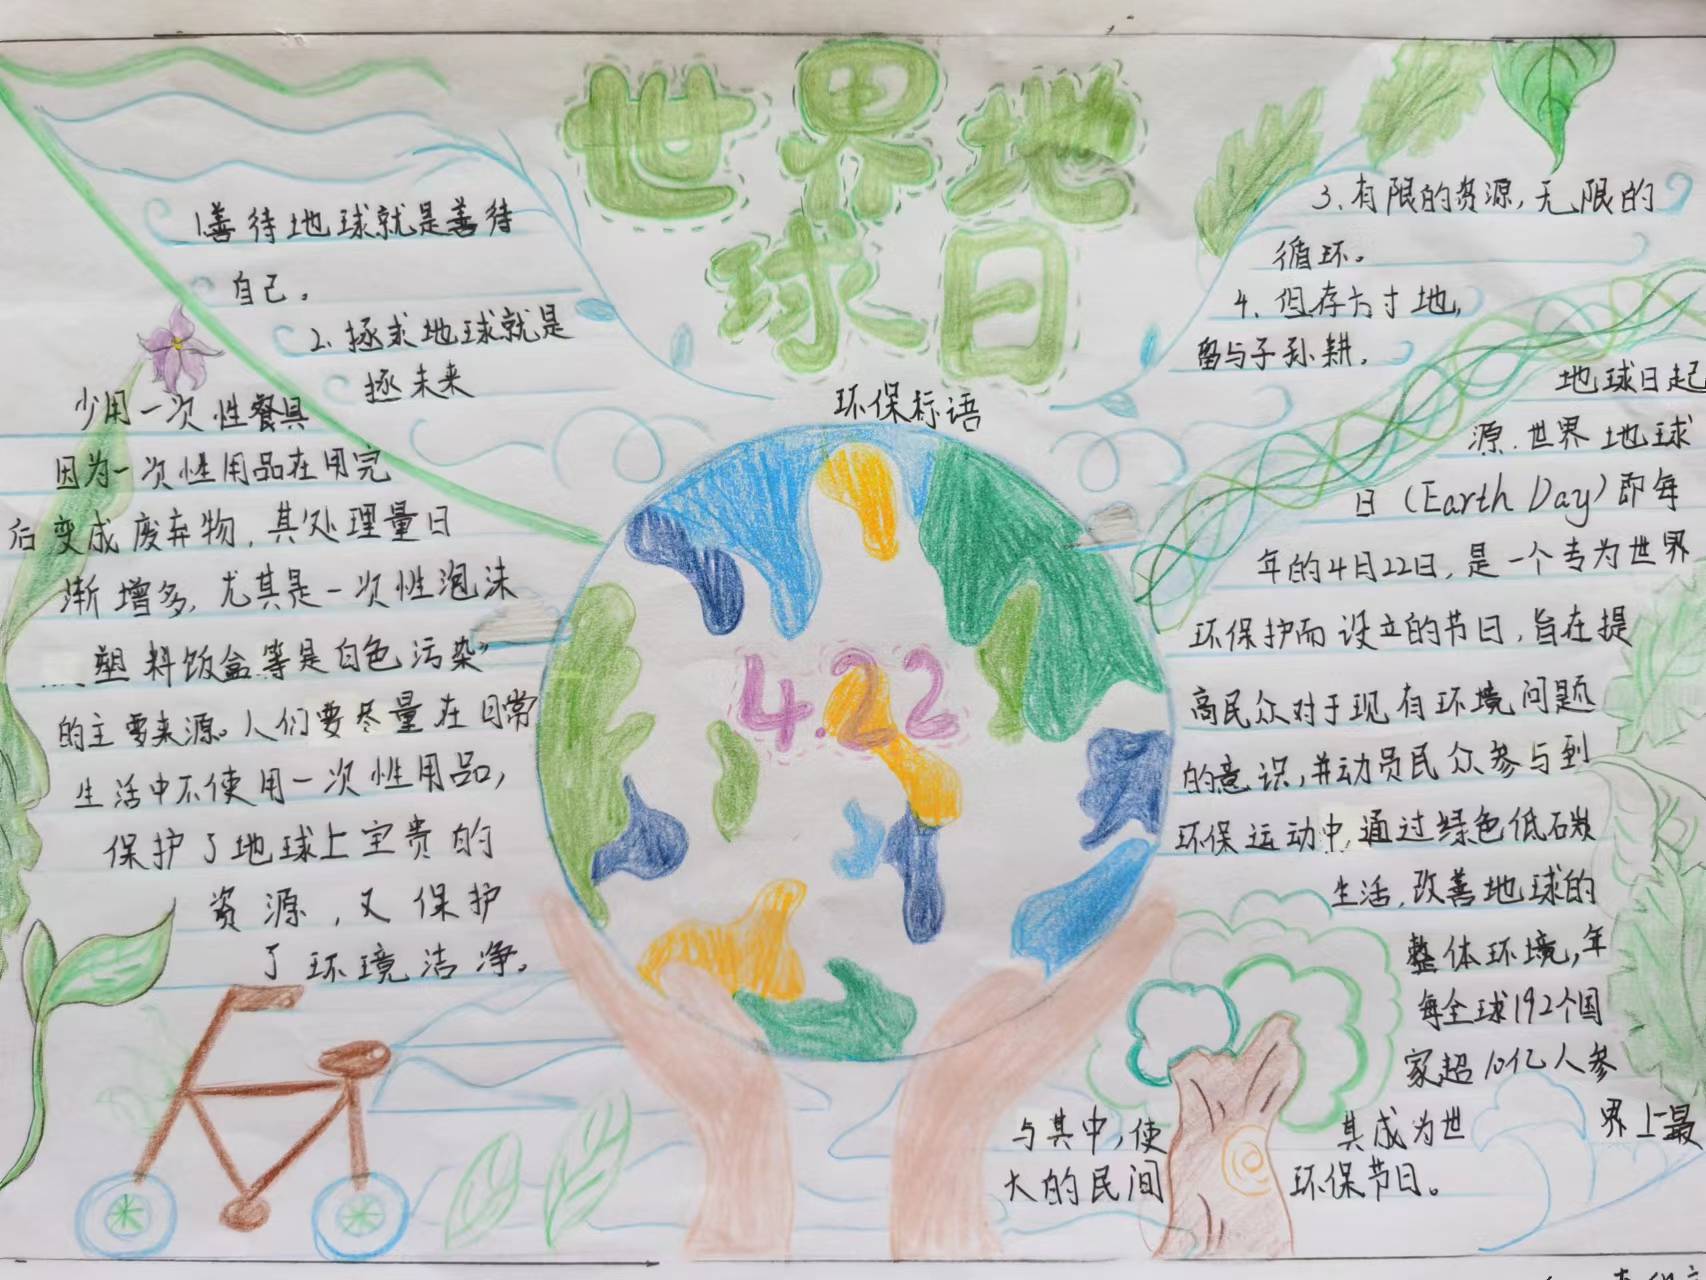 世界地
球日
环保标语
1善待地球就是善待
自己。
2.拯求地球就是
拯未来
3.有限的资源,无限的
循环。
4.但存方寸地,
留与子孙耕.
少用一次性餐具
因为一次性用品在用完
后变成废弃物,其处理量日
渐增多,尤其是一次性泡沫
塑料饭盒等是白色污染”
的主要来源。人们要尽量在日常
生活中不使用一次性用品,
保护了地球上宝贵的
资源,又保护
了环境洁净。
4.22
地球日起
源.世界地球
日(Earth Day)即每
年的4月22日,是一个专为世界
环保护而设立的节日,旨在提
高民众对于现有环境问题
的意识,并动员民众参与到
环保运动中,通过绿色低碳
生活,改善地球的
整体环境,年
每全球192个国
家超10亿人参
与其中,使其成为世界上最
大的民间环保节日。